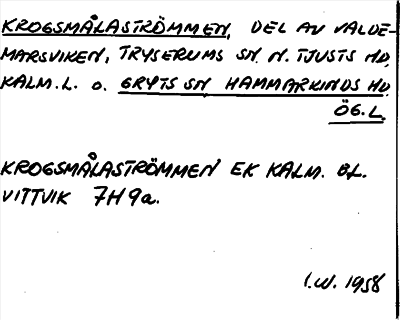 KROGSMÅLASTRÖMMEN, DEL AV VALDE-
MARSVIKEN, TRYSERUMS SN. N. TJUSTS HD,
KALM. L. O. GRYTS SN HAMMARKINDS HD
ÖG. L.
KROGSMÅLASTRÖMMEN EK KALM. BL.
VITTVIK 7H9a.
I.W. 1958